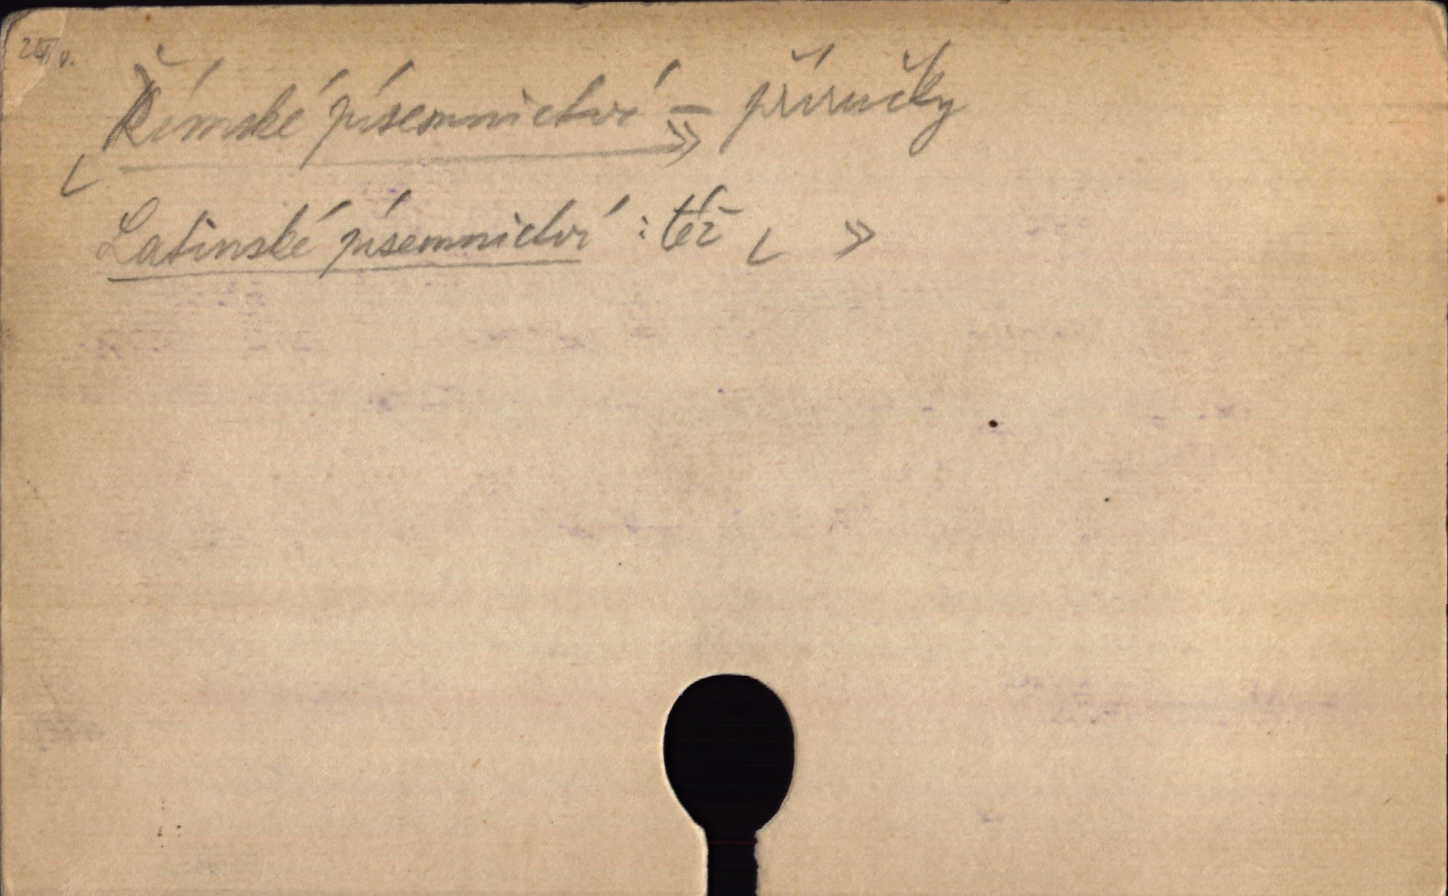 Římské písemnictví – příručky
Latinské písemnictví : též